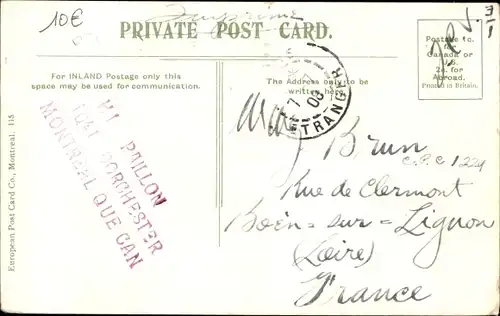 10€
PRIVATE POST CARD.
For INLAND Postage only this
space may be used for communication.
The Address only to be
written here.
Postage 1c.
for
Canada or
U.S.
2c. for
Abroad.
Printed in Britain.
ETRANGER
08
PAILLON
DORCHESTER
MONTREAL QUE CAN
European Post Card Co., Montreal. 115
Brun
C.P.C 1224
Rue de Clermont
Boën-sur-Lignon
(Loire)
France